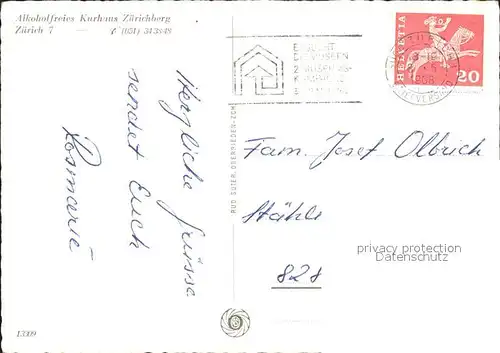 Alkoholfreies Kurhaus Zürichberg
Zürich 7 — ✆ (051) 343848
Herzliche Grüsse
sendet Euch
Rosmarie
13309
RUD. SUTER, OBERRIEDEN-ZCH
HELVETIA
20
Fam. Josef Olbrich
Stähle
828
privacy protection
Datenschutz